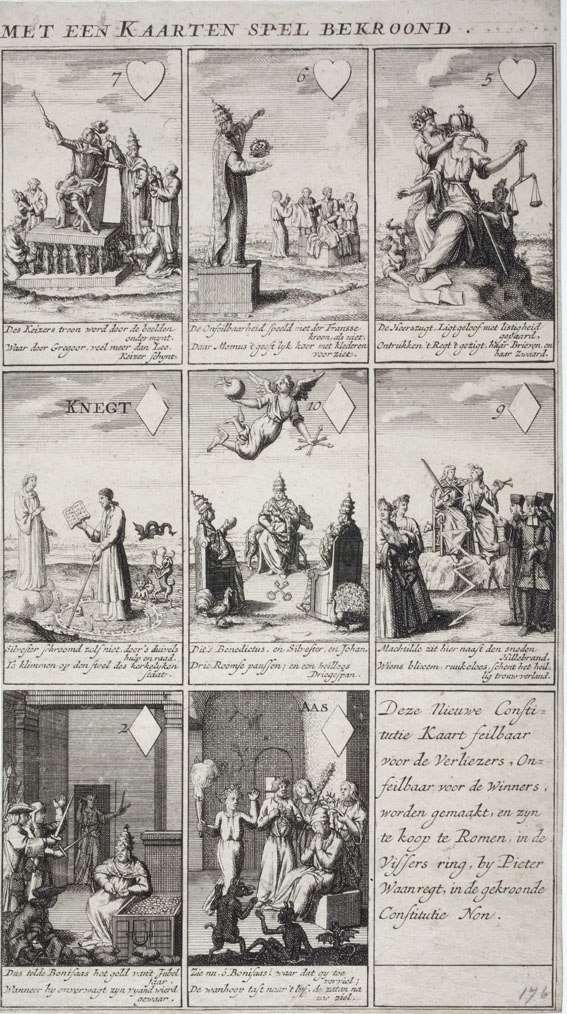 MET EEN KAARTEN SPEL BEKROOND .
7
Des Keizers troon word door de beelden
onder mynt.
Waar door Gregoor, veel meer dan Leo,
Keizer schynt.
6
De Onfeilbaarheid speeld met der Fransse
kroon, als niet.
Daar Momus 't geest'lyk koor met klederen
voor ziet.
5
De Heerszugt, Ligtgeloof met listigheid
gepaard.
Ontrukken 't Regt 't gezigt, haar Brieven, en
haar Zwaard.
KNEGT
Silvester schroomd zelf niet, door's duivels
hulp en raad.
Te klimmen op den stoel des kerkelyken
staat.
10
Dit's Benedictus, en Silvester, en Johan.
Drie Roomse paussen; en een heilloos
Driegespan.
9
Machtilde zit hier naast den snooden
Hillebrand.
Wiens blixem, ruukeloos, schent het heil-
lig trouwverland.
2
Dus telde Bonifaas het geld van't Jubel
Jaar.
Wanneer hy onverwagt zyn vyand wierd
gewaar.
AAS
Zie nu, ô Bonifaas! waar dat gy toe
verviel;
De wanhoop tast naar 't lyf, de zatan na
uw ziel.
Deze Nieuwe Consti=
tutie Kaart feilbaar
voor de Verliezers, On=
feilbaar voor de Winners,
worden gemaakt, en zyn
te koop te Romen, in de
Vissers ring, by Pieter
Waanregt, in de gekroonde
Constitutie Non.
176